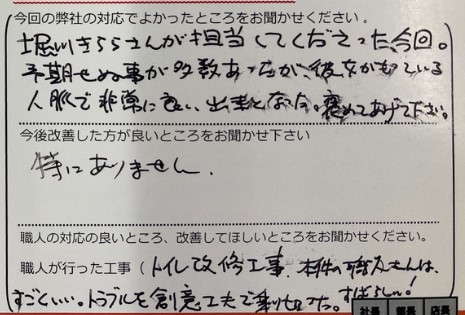 今回の弊社の対応でよかったところをお聞かせください。
堀川きららさんが担当してくださった今回。
予期せぬ事が多数あったが、彼女がもっている
人脈で非常に良い出来となった。褒めてあげて下さい。
今後改善した方が良いところをお聞かせ下さい
特にありません.
職人の対応の良いところ、改善してほしいところをお聞かせください。
職人が行った工事(トイレ改修工事.本件の職人さんは、
すごくいい。トラブルを創意工夫で乗りせった。すばらしい!
社長 部長 店長